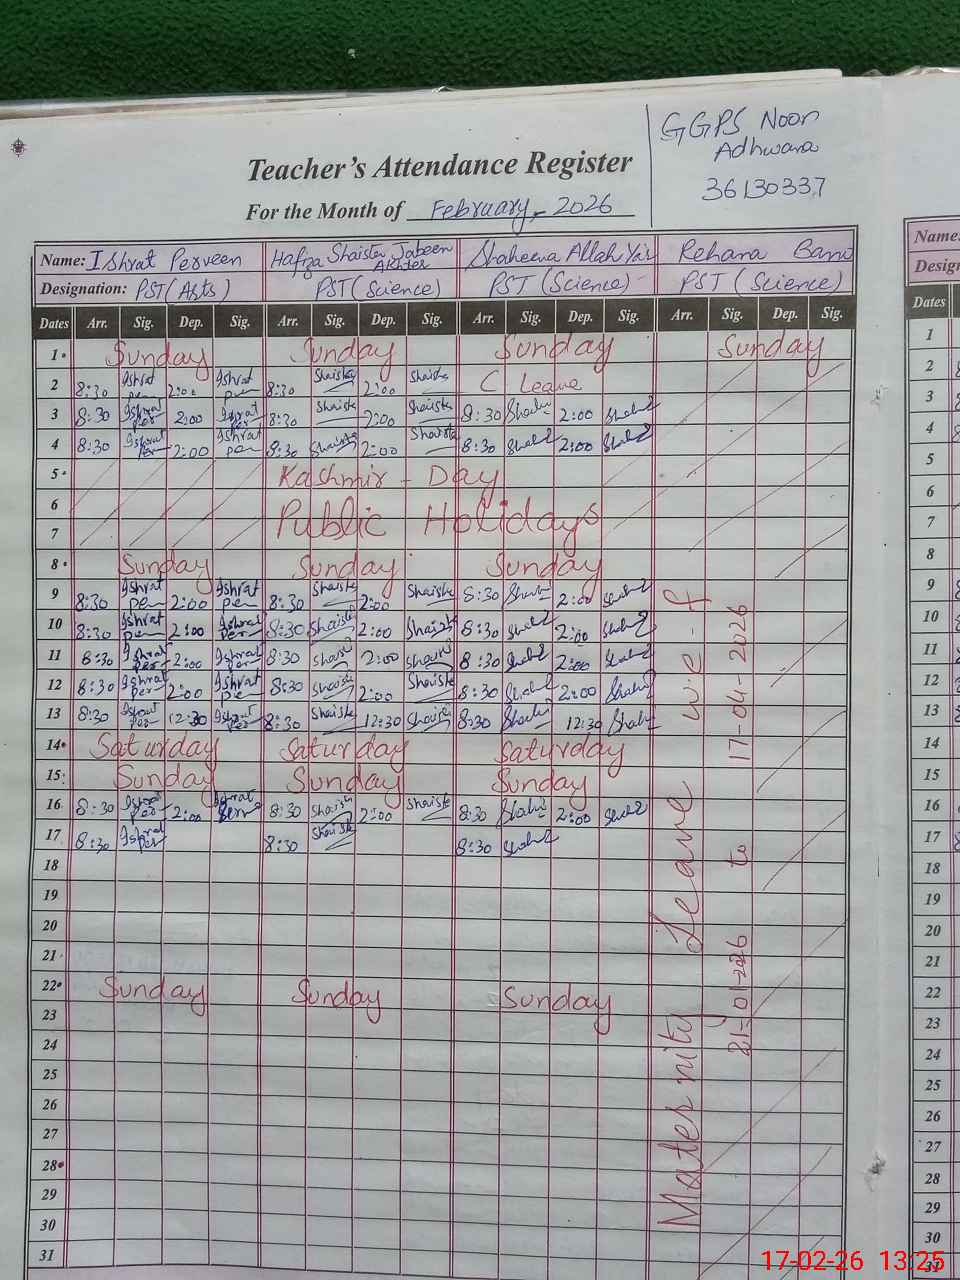 GGPS Noor
Adhwara
36130337
Teacher's Attendance Register
For the Month of February, 2026
Name: Ishrat Perveen Hafza Shaista Jabeen Akhter Shaheena Allah Yar Rehana Bano
Name:
Designation: PST (Arts) PST (Science) PST (Science) PST (Science)
Design
Dates Arr. Sig. Dep. Sig. Arr. Sig. Dep. Sig. Arr. Sig. Dep. Sig. Arr. Sig. Dep. Sig.
Dates
1 Sunday Sunday Sunday Sunday
2 8:30 Ishrat per 2:00 Ishrat per 8:30 Shaista 2:00 Shaista C Leave
3 8:30 Ishrat per 2:00 Ishrat per 8:30 Shaista 2:00 Shaista 8:30 2:00
4 8:30 Ishrat per 2:00 Ishrat per 8:30 Shaista 2:00 Shaista 8:30 2:00
5 Kashmir - Day
6 Public Holidays
7
8 Sunday Sunday Sunday
9 8:30 Ishrat per 2:00 Ishrat per 8:30 Shaista 2:00 Shaista 8:30 2:00
10 8:30 Ishrat per 2:00 Ishrat per 8:30 Shaista 2:00 Shaista 8:30 2:00
11 8:30 Ishrat per 2:00 Ishrat per 8:30 Shaista 2:00 Shaista 8:30 2:00
12 8:30 Ishrat per 2:00 Ishrat per 8:30 Shaista 2:00 Shaista 8:30 2:00
13 8:30 Ishrat per 12:30 Ishrat per 8:30 Shaista 12:30 Shaista 8:30 12:30
14 Saturday Saturday Saturday
15 Sunday Sunday Sunday
16 8:30 Ishrat per 2:00 Ishrat per 8:30 Shaista 2:00 Shaista 8:30 2:00
17 8:30 Ishrat per 8:30 Shaista 8:30
18
19
20
21
22 Sunday Sunday Sunday
23
24
25
26
27
28
29
30
31
Maternity Leave w.e-f
21-01-2026 to 17-04-2026
1
2
3
4
5
6
7
8
9
10
11
12
13
14
15
16
17
18
19
20
21
22
23
24
25
26
27
28
29
30
31
17-02-26 13:25